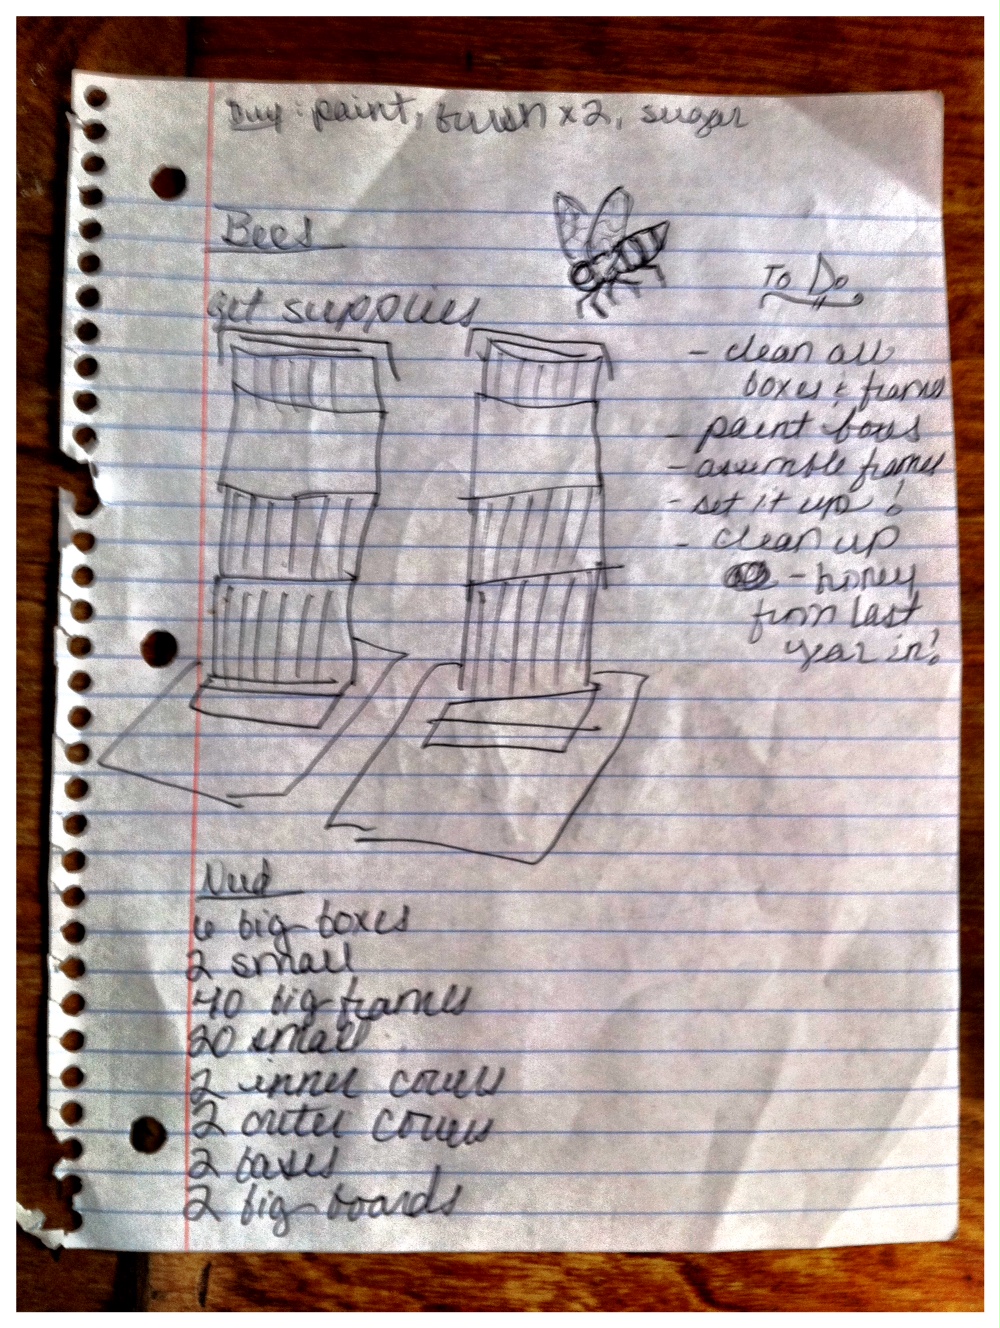 Buy: paint, brush x 2, sugar
Bees
get supplies
To Do
- clean all
boxes & frames
- paint boxes
- assemble frames
- set it up!
- clean up
- honey
from last
year in!
Need
6 big boxes
2 small
40 big frames
20 small
2 inner covers
2 outer covers
2 bases
2 big boards